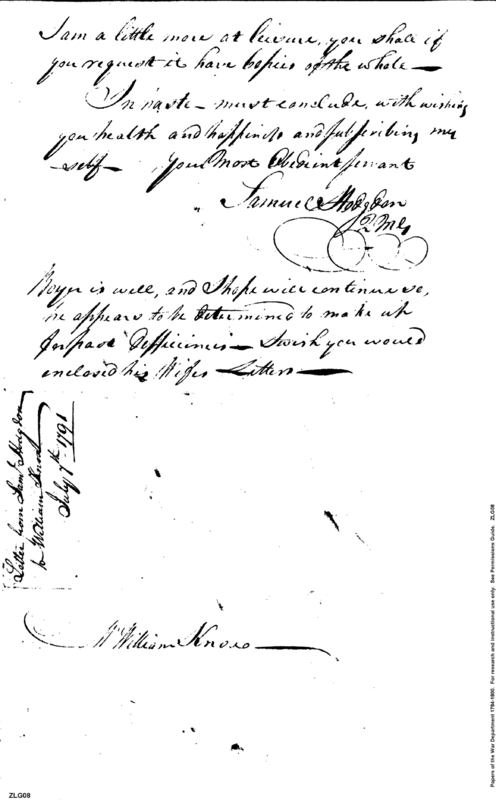 I am a little more at leisure, you shall if
you request it have Copies of the whole —
In haste — must conclude, with wishing
you health and happiness and subscribing my
self — your Most Obedient servant
Samuel Hodgdon
QMG
is well, and I hope will continue so,
he appears to be determined to make up
for past defficiencies — I wish you would
enclosed his Wifes Letters —
Letter from Saml Hodgdon
to William Knox
July 7th 1791
Mr William Knox
Papers of the War Department 1784-1800. For research and instructional use only. See Permissions Guide. ZLG08
ZLG08